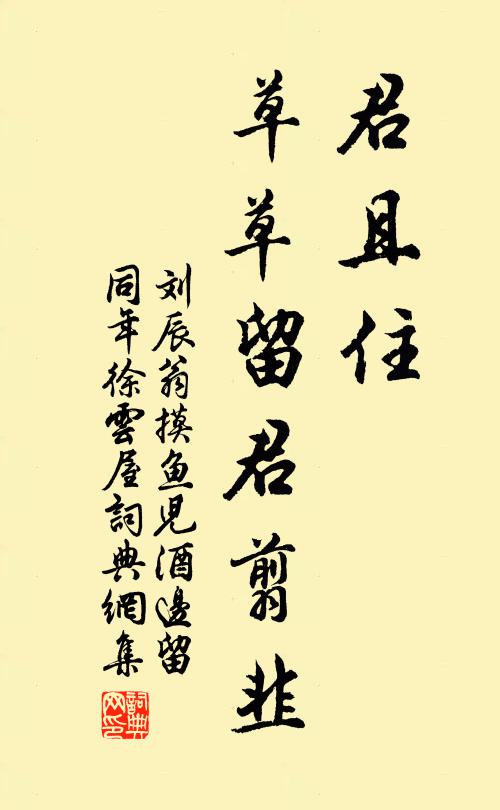 君且住
草草留君翦韭
刘辰翁摸鱼児酒邊留
同年徐雲屋詞典網集
詞典
网印